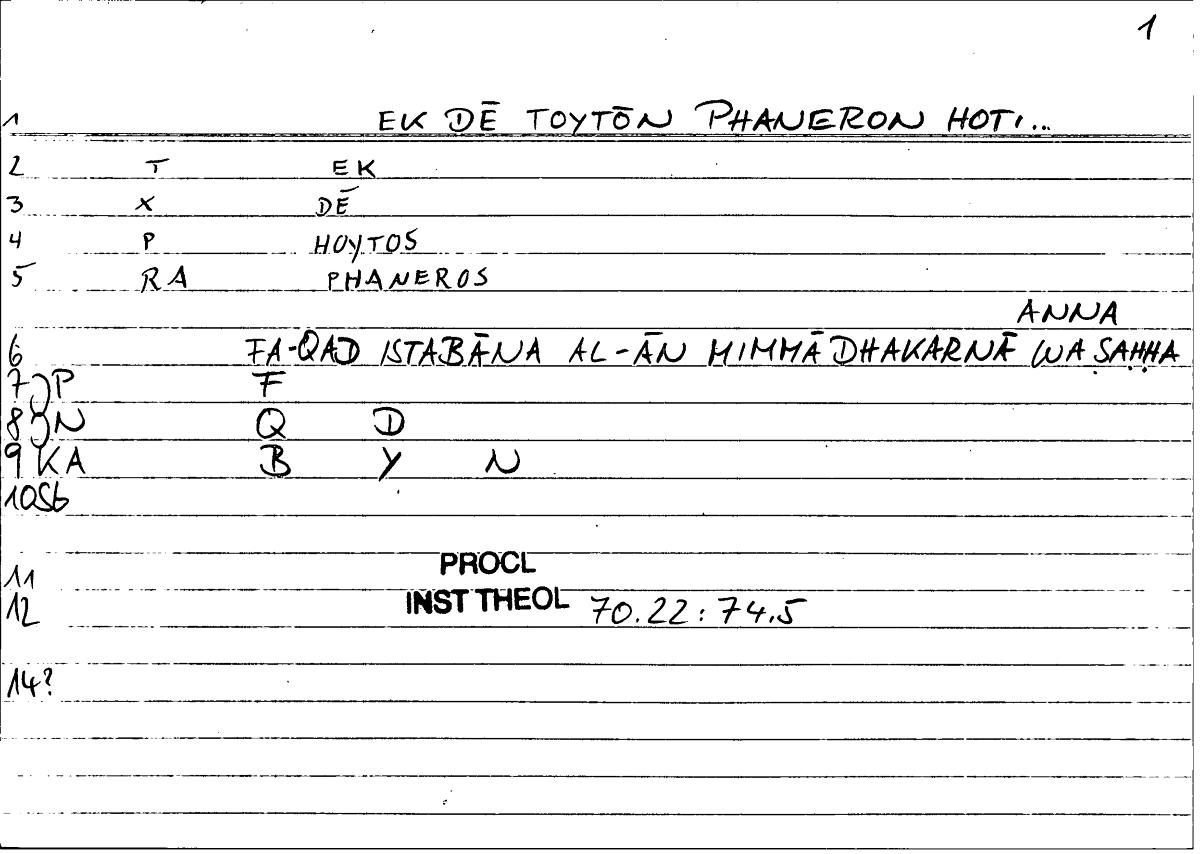 1
1 EK DĒ TOYTŌN PHANERON HOTI...
2 T EK
3 X DĒ
4 P HOYTOS
5 RA PHANEROS
ANNA
6 FA-QAD ISTABĀNA AL-ĀN MIMMĀ DHAKARNĀ WA ṢAḤḤA
7 JP F
8 JN Q D
9 KA B Y N
10 Sb
11 PROCL
12 INST THEOL 70.22: 74.5
14?